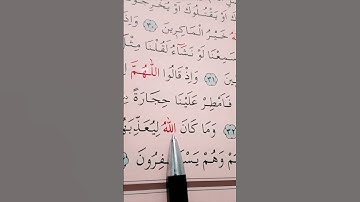 أَوْ يَقْتُلُوكَ أَوْ يُخْرِجُوكَ
خَيْرُ الْمَاكِرِينَ ٣٠
سَمِعْنَا لَوْ نَشَاءُ لَقُلْنَا مِثْلَ
٣١ وَإِذْ قَالُوا اللَّهُمَّ
فَأَمْطِرْ عَلَيْنَا حِجَارَةً
٣٢ وَمَا كَانَ اللَّهُ لِيُعَذِّبَهُمْ
وَهُمْ يَسْتَغْفِرُونَ